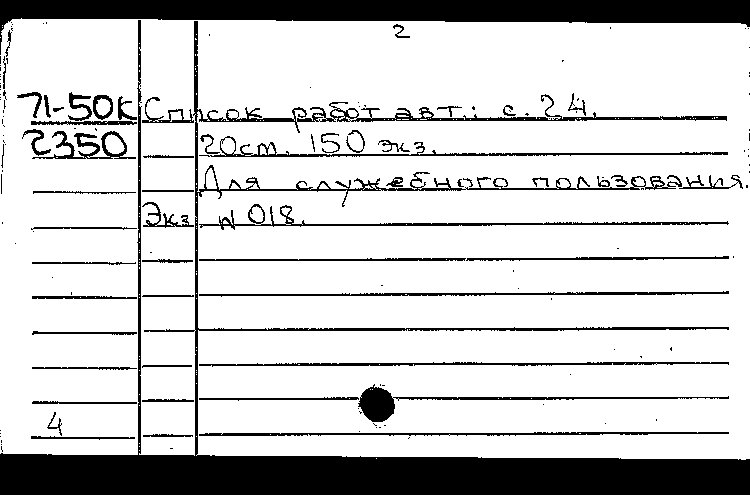 2
71-50К Список работ авт.: с. 24.
2350 20см. 150 экз.
Для служебного пользования.
Экз. N 018.
4